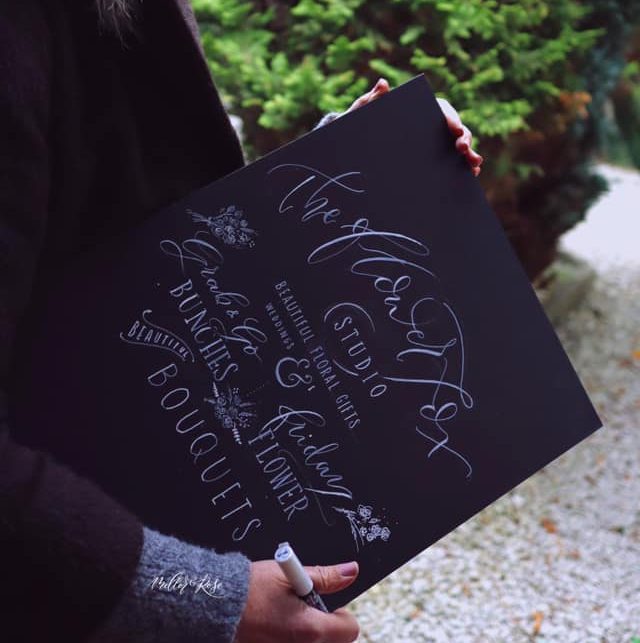 The Flower Fox
STUDIO
BEAUTIFUL FLORAL GIFTS
WEDDINGS
&
Friday
FLOWER
Grab & Go
BUNCHES
BEAUTIFUL
BOUQUETS